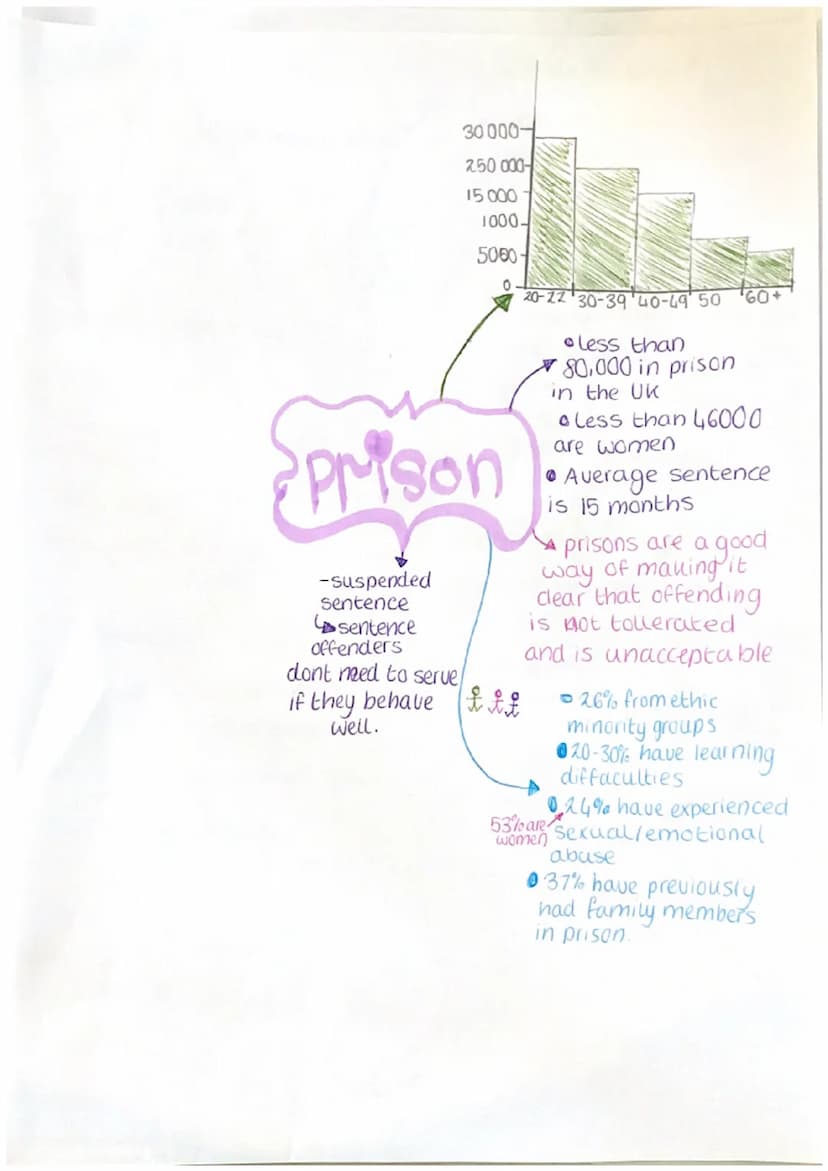 30000
250 000
15 000
1000
5000
0
20-22 30-39 40-49 50 60+
less than
80,000 in prison
in the UK
Less than 46000
are women
Average sentence
is 15 months
prison
prisons are a good
way of making it
clear that offending
is not tollerated
and is unacceptable
-suspended
sentence
sentence
offenders
dont need to serve
if they behave
well.
26% from ethic
minority groups
20-30% have learning
diffaculties
24% have experienced
sexual/emotional
abuse
53% are
women
37% have previously
had family members
in prison.